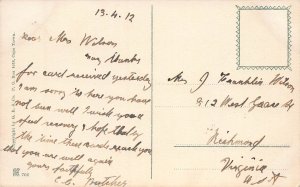 13.4.12
Dear Mrs Wilson
many thanks
for card received yesterday
I am sorry to hear you have
not been well I wish you a
speedy recovery & hope that by
the time this card reach you
that you are well again
yours faithfully
Mrs J Franklin Wilson
912 West Grace St
Richmond
Virginia
U.S.A